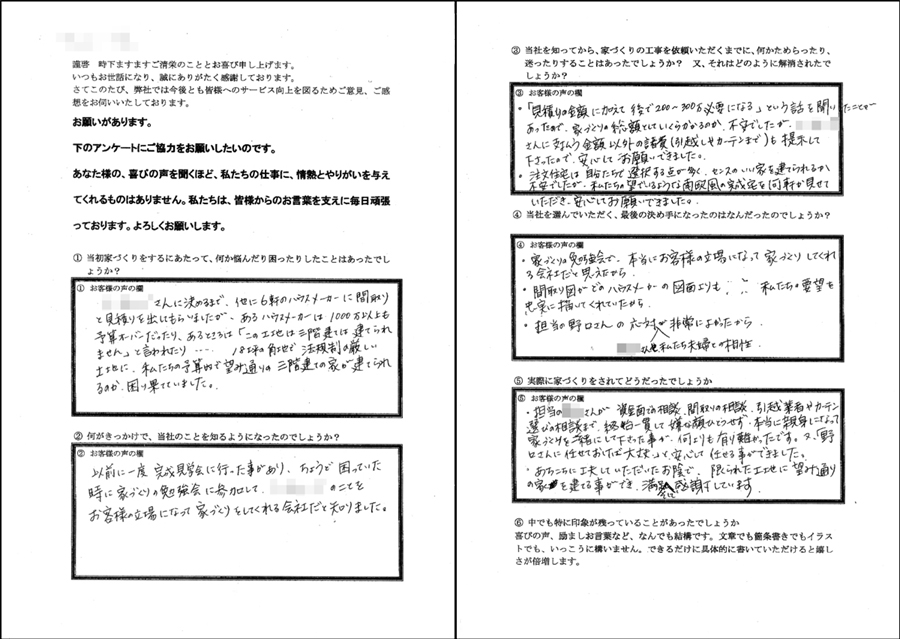 謹啓　時下ますますご清栄のこととお喜び申し上げます。
いつもお世話になり、誠にありがたく感謝しております。
さてこのたび、弊社では今後とも皆様へのサービス向上を図るためご意見、ご感
想をお伺いいたしております。
お願いがあります。
下のアンケートにご協力をお願いしたいのです。
あなた様の、喜びの声を聞くほど、私たちの仕事に、情熱とやりがいを与え
てくれるものはありません。私たちは、皆様からのお言葉を支えに毎日頑張
っております。よろしくお願いします。
① 当初家づくりをするにあたって、何か悩んだり困ったりしたことはあったでし
ょうか？
① お客様の声の欄
さんに決めるまで、他に6軒のハウスメーカーに間取り
と見積りを出してもらいましたが、あるハウスメーカーは1000万以上も
予算オーバーだったり、あるところは「この土地は三階建ては建てられ
ません」と言われたり…… 18坪の角地で法規制の厳しい
土地に、私たちの予算内で望み通りの三階建ての家が建てられ
るのか、困り果てていました。
② 何がきっかけで、当社のことを知るようになったのでしょうか？
② お客様の声の欄
以前に一度完成見学会に行った事があり、ちょうど困っていた
時に家づくりの勉強会に参加して、 のことを
お客様の立場になって家づくりをしてくれる会社だと知りました。
③ 当社を知ってから、家づくりの工事を依頼いただくまでに、何かためらったり、
迷ったりすることはあったでしょうか？　又、それはどのように解消されたで
しょうか？
③ お客様の声の欄
・「見積りの金額に加えて後で200～300万必要になる」という話を聞いたことが
あったので、家づくりの総額としていくらかかるのか、不安でしたが、
さんに支払う金額以外の諸費（引越しやカーテンまで）も提示して
下さったので、安心してお願いできました。
・注文住宅は自分たちで選択する点が多く、センスのいい家を建てられるか
不安でしたが、私たちの望んでいるような南欧風の完成宅を何軒か見せて
いただき、安心してお願いできました。
④ 当社を選んでいただく、最後の決め手になったのはなんだったのでしょうか？
④ お客様の声の欄
・家づくりの勉強会で、本当にお客様の立場になって家づくりしてくれ
る会社だと思えたから。
・間取り図がどのハウスメーカーの図面よりも、私たちの要望を
忠実に描いてくれていたから。
・担当の野口さんの応対が非常によかったから。
さんと私たち夫婦との相性
⑤ 実際に家づくりをされてどうだったでしょうか
⑤ お客様の声の欄
・担当の さんが資金面での相談、間取りの相談、引越業者やカーテン
選びの相談まで、終始一貫して嫌な顔ひとつせず、本当に親身になって
家づくりを一緒にして下さった事が、何よりも有り難かったです。又、「野
口さんに任せておけば大丈夫」と、安心して任せる事ができました。
・あちこちに工夫していただいたお陰で、限られた土地に望み通り
の家を建てる事ができ、満足、感謝しています。
⑥ 中でも特に印象が残っていることがあったでしょうか
喜びの声、励ましお言葉など、なんでも結構です。文章でも箇条書きでもイラス
トでも、いっこうに構いません。できるだけに具体的に書いていただけると嬉し
さが倍増します。